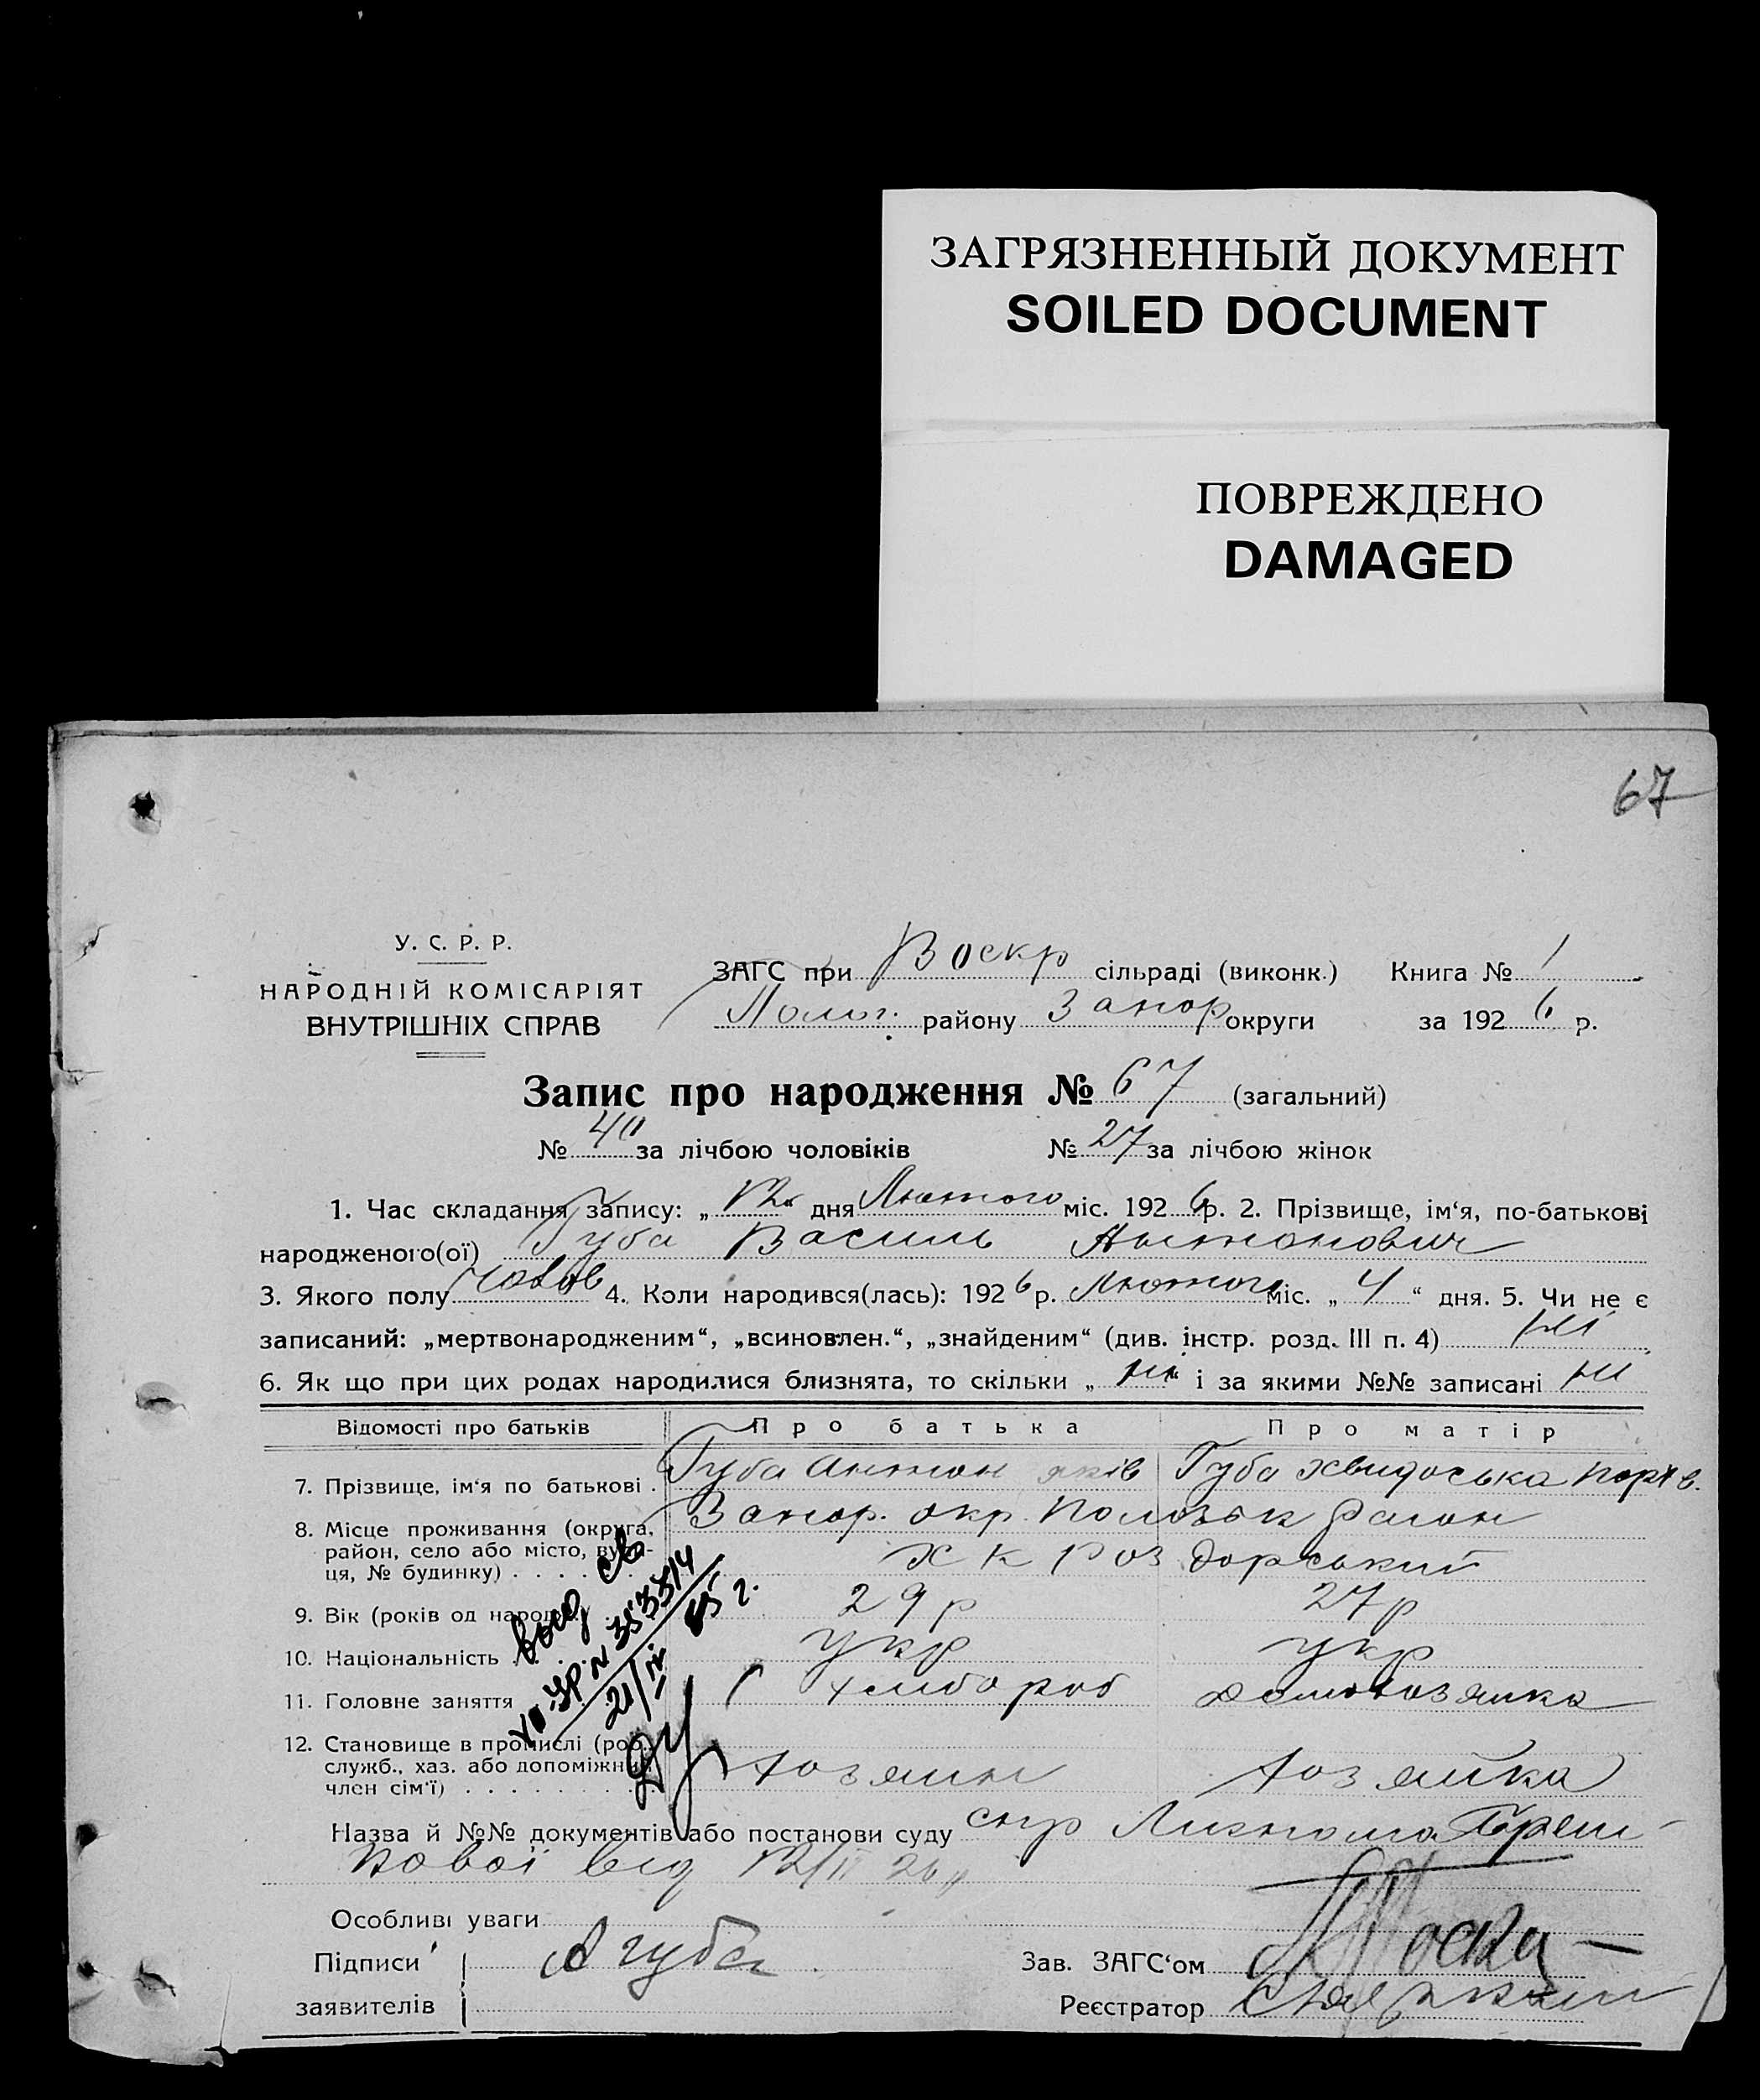 ЗАГРЯЗНЕННЫЙ ДОКУМЕНТ
SOILED DOCUMENT
ПОВРЕЖДЕНО
DAMAGED
67
У. С. Р. Р.
НАРОДНІЙ КОМІСАРІЯТ
ВНУТРІШНІХ СПРАВ
ЗАГС при Воскр сільраді (виконк.) Книга № 1
району Запор округи за 1926 р.
Запис про народження № 67 (загальний)
№ 40 за лічбою чоловіків № 27 за лічбою жінок
1. Час складання запису: „12“ дня Лютого міс. 1926 р. 2. Прізвище, ім‘я, по-батькові
народженого(ої) Губа Василь Антонович
3. Якого полу 4. Коли народився(лась): 1926 р. Лютого міс. „4“ дня. 5. Чи не є
записаний: „мертвонародженим“, „всиновлен.“, „знайденим“ (див. інстр. розд. III п. 4) ні
6. Як що при цих родах народилися близнята, то скільки „ні“ і за якими №№ записані ні
Відомості про батьків Про батька Про матір
7. Прізвище, ім‘я по батькові . Губа Антон яків Губа
8. Місце проживання (округа, Запор. окр. район
район, село або місто, вули-
ця, № будинку) . . . .
9. Вік (років од народ.) 29 р 27 р
10. Національність . . укр укр
11. Головне заняття хлібороб домохозяйка
12. Становище в промислі (роб.,
служб., хаз. або допоміжний хозяин хозяйка
член сім‘ї) . . . . . . .
Назва й №№ документів або постанови суду
від 12/II 26
Особливі уваги
Підписи А губа Зав. ЗАГС‘ом
заявителів Реєстратор
21/IV 65 г.